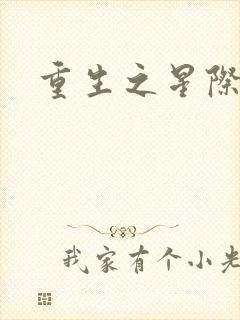 重生之星际
我家有个小